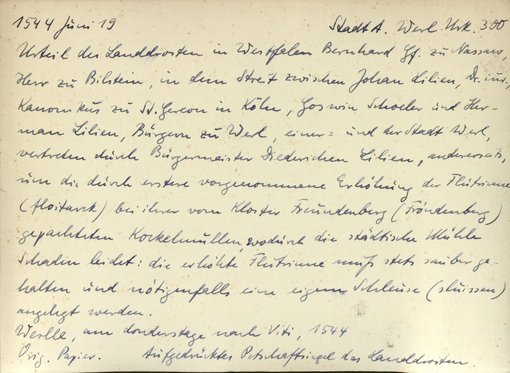 1544 Juni 19 StadtA. Werl Urk. 300
Urteil des Landdrosten in Westfalen Bernhard Gf. zu Nassau,
Herr zu Bilstein, in dem Streit zwischen Johan Lilien, Dr. iur.,
Kanonikus zu St. Gereon in Köln, Goswin Schoeler und Her-
man Lilien, Bürgern zu Werl, einer- und der Stadt Werl,
vertreten durch Bürgermeister Diederichen Lilien, anderseits,
um die durch erstere vorgenommene Erhöhung der Flutrinne
bei ihrer vom Kloster Freundenberg (Fröndenberg)
gepachteten Kockelmullen, wodurch die städtische Mühle
Schaden leidet: die erhöhte Flutrinne muß stets sauber ge-
halten und nötigenfalls eine eigene Schleuse (slüssen)
angelegt werden.
Werlle, am donderstage nach Viti, 1544
Orig. Papier. Aufgedrücktes Petschaftsiegel des Landdrosten.